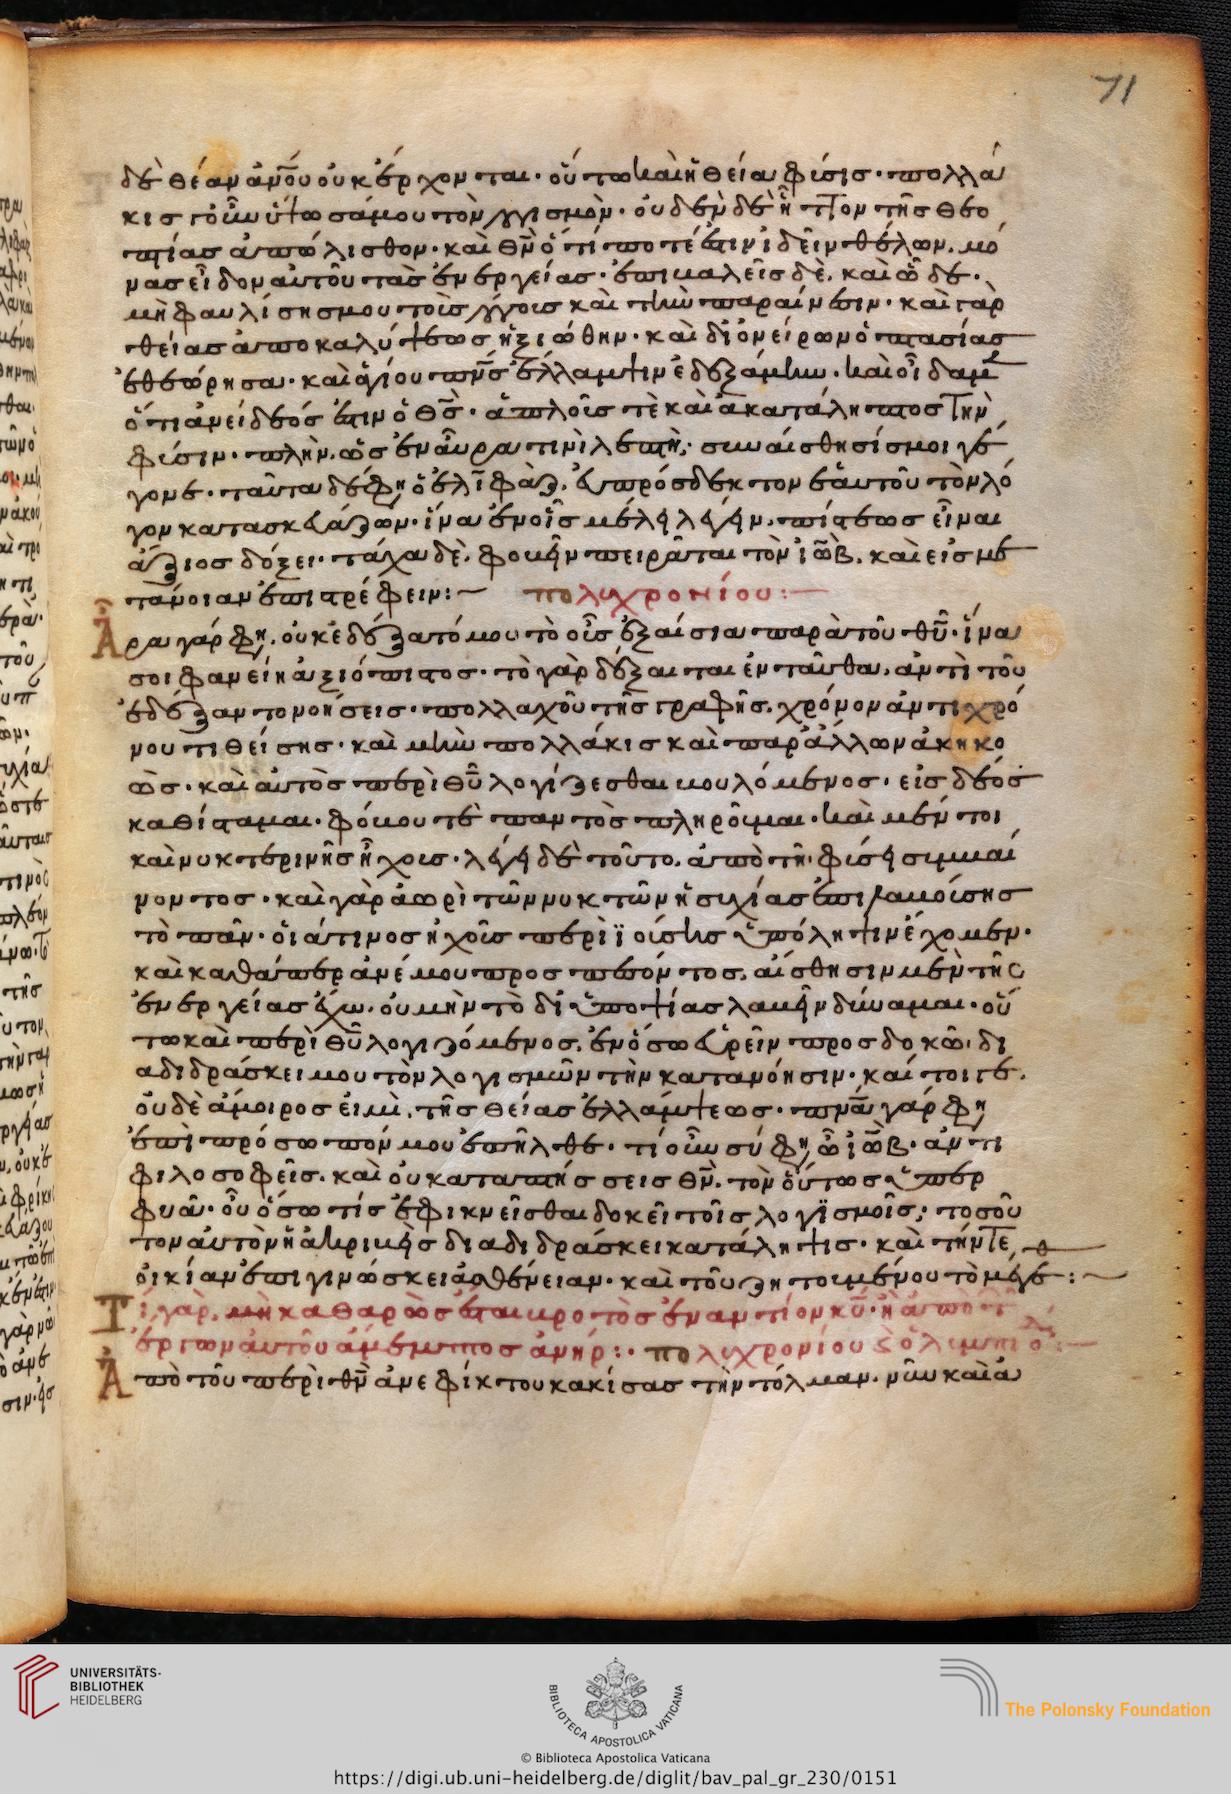 71
δὲ θέαν ἀν̅ο̅υ οὐκ ἔρχονται· οὕτω καὶ ἡ θεία φύσις· πολλά
κις γοῦν ὕψωσά μου τὸν λογισμὸν· οὐδὲν δὲ ἧττον τῆς θεο
πτίας ἀπώλισθον· καὶ θ̅ν̅ ὅτί ποτέ ἐστιν ἰδεῖν θέλων, μό
νας εἶδον αὐτοῦ τὰς ἐνεργείας· ἐπικαλεῖς δὲ, καὶ ὧδε·
μὴ φαυλίσῃς μου τοῖς λόγοις καὶ τὴν παραίνεσιν· καὶ γὰρ
θείας ἀποκαλύψεως ἠξιώθην· καὶ δι' ὀνείρων ὀπτασίας
ἐθεώρησα· καὶ ἁγίου π̅ν̅ς ἔλλαμψιν ἐδεξάμην· καὶ οἶδα μὲν
ὅτι ἀνείδεός ἐστιν ὁ θ̅ς̅· ἁπλοῖς τὲ καὶ ἀκατάληπτος τὴν
φύσιν· πλὴν, ὡς ἐν αὔρα τινὶ λεπτῆ· συναίσθησίς μοι γέ
γονε· ταῦτα δέ φη ὁ ἐλιφὰζ, εὐπρόσδεκτον ἑαυτοῦ τὸν λό
γον κατασκευάζων· ἵνα ἐν οἷς μέλει λέγειν, πίστεως εἶναι
ἄξιος δόξει· τάχα δὲ, φοβεῖν πειρᾶται τὸν ἰὼβ, καὶ εἰς με
τάνοιαν ἐπιστρέφειν:~ πολυχρονίου:~
Ἆρα γάρ φη, οὐκ ἐδέξατό μου τὸ οὖς ἐξαίσια παρὰ τοῦ θ̅υ̅· ἵνα
σοι φανείη ἀξιόπιστος· τὸ γὰρ δέξαιται ἐνταῦθα, ἀντὶ τοῦ
ἐδέξαντο νοήσεις· πολλαχοῦ τῆς γραφῆς, χρόνον ἀντὶ χρό
νου τιθείσης· καὶ μὴν πολλάκις καὶ παρ' ἄλλων ἀκηκο
ὼς· καὶ αὐτὸς περὶ θ̅υ̅ λογίζεσθαι βουλόμενος, εἰς δέος
καθίσταμαι· φόβου τὲ παντὸς πληροῦμαι· καὶ μέν τοι
καὶ νυκτερινῆς ἦχοις· λέγει δὲ τοῦτο, ἀπὸ τῆ φύσει συμβαί
νοντος· καὶ γὰρ ἀωρὶ τῶν νυκτῶν ἡσυχίας ἐπιλαβούσης
τὸ πᾶν· οἱάτινος ἠχοῖς περιϊούσης ὑπόληψιν ἔχομεν·
καὶ καθάπερ ἀνέμου προσπεσόντος, αἴσθησιν μὲν τῆς
ἐνεργείας ἔχω, οὐ μὴν τὸ δι' ὑποψίας λαβεῖν δύναμαι· οὕ
τω καὶ περὶ θ̅υ̅ λογιζόμενος, ἐν ὅσω εὑρεῖν προσδοκῶ, δι
αδιδράσκει μου τὸν λογισμῶν τὴν κατανόησιν· καί τοι γε,
οὐδὲ ἄμοιρος εἰμὶ, τῆς θείας ἐλλάμψεως· π̅ν̅α̅ γάρ φη
ἐπὶ πρόσωπόν μου ἐπῆλθε· τί οὖν σύ φη, ὦ ἰὼβ· ἀντι
φιλοσοφεῖς, καὶ οὐ καταπτήσσεις θ̅ν̅, τὸν οὕτως ὑπερ
φυᾶ· οὗ ὅσω τίς ἐφικνεῖσθαι δοκεῖ τοῖς λογϊσμοῖς, τοσοῦ
τον αὐτὸν ἡ ἀκριβὴς διαδιδράσκει κατάληψις· καὶ τήν τε
οἰκίαν ἐπιγινώσκει ἀσθένειαν· καὶ τοῦ ζητουμένου τὸ μέγεθο:~
Τί γάρ, μὴ καθαρὸς ἔσται βροτὸς ἐναντίον κ̅υ̅· ἢ ἀπὸ τῶν
ἔργων αὐτοῦ ἄμεμπτος ἀνήρ:· πολυχρονίου καὶ ὀλυμπιοδ:~
Ἀπὸ τοῦ περὶ θ̅ν̅ ἀνεφίκτου κακίσας τὴν τόλμαν, νῦν καὶ ἀ
UNIVERSITÄTS-
BIBLIOTHEK
HEIDELBERG
BIBLIOTECA APOSTOLICA VATICANA
The Polonsky Foundation
© Biblioteca Apostolica Vaticana
https://digi.ub.uni-heidelberg.de/diglit/bav_pal_gr_230/0151